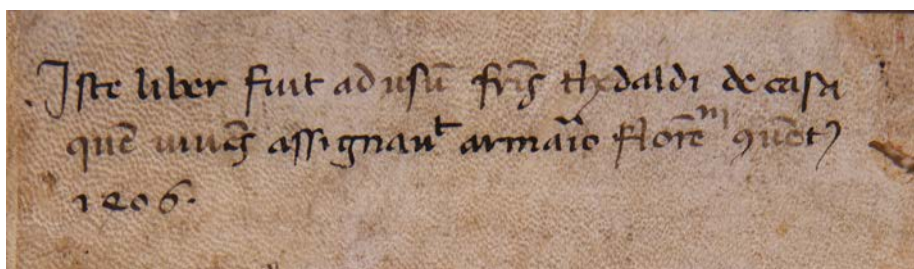 Iste liber fuit ad usū fr̄is thedaldi de casa
quē viuēs assignauit armar̄io florēni ꝯuēt9
1406.